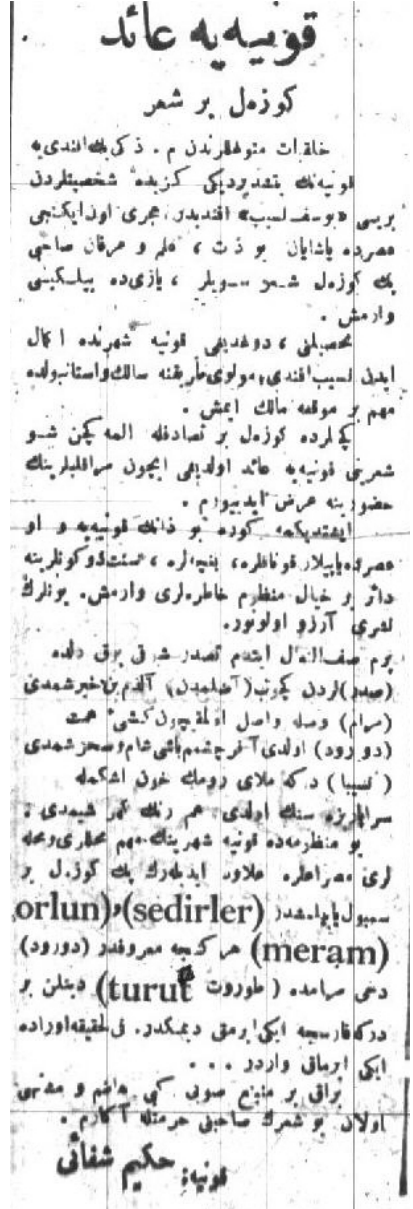 قونیه‌یه عائد
كوزەل بر شعر
خلقیات متوغللرندن م . ذكی بك‌افندی‌یه
قونیه‌نك یتشدیردیكی كزیده شخصیتلردن
بریسی «یوسف نسیب» افندیدر. هجری اون‌ایكنجی
عصرده یاشایان بو ذت ، علم و عرفان صاحبی
پك كوزەل شعر سویلر ، یازی‌ده بیله‌كینی
وارمش .
تحصیلنی ، دوغدیغی قونیه شهرنده اكمال
ایدن نسیب افندی، مولوی طریقنه سالك واستانبولده
مهم بر موقعه مالك ایمش .
كچلرده كوزەل بر تصادفله المه كچن شو
شعرینی قونیه‌یه عائد اولدیغی ایچون مراقلیلرینك
حضورینه عرض ایدییورم .
ایشتدیكمه كوره بو ذاتك قونیه‌یه و او
عصرده یاپیلان قوناقلره، بنچه‌لره ، سنت دوكونلرینه
دائر بر خیال منظوم خاطره‌لری وارمش. بونلرك
نشری آرزو اولونور.
بزم صف‌النعال ایتدم تصدر شرقی برق دلده
(صدر)لردن كچوب(آصلمدن) آلدم بن خبر شمدی
(مرام) وصله واصل اولمق‌چون كشیء همت
(دورود) اولدی آخر چشمم یاشی شام و سحر شمدی
(نسیبا) دركه ملای رومك خون اشكمله
سراپا ریزهء سنك اولدی هم رنك كهر شیمدی .
بو منظومه‌ده قونیه شهرینك مهم محللری ومحله
لری مصراعلره علاوه ایدیله‌رك پك كوزەل بر
سمبول یاپیلمشدر (sedirler)و(orlun)
(meram) هركسجه معروفدر (دورود)
دخی مرامده (طوروت turut) دینلن بر
دركه فارسیجه ایكی ایرمق دیمكدر. فی‌الحقیقه اوراده
ایكی ایرماق واردر . . .
براق بر منبع صویی كبی هاضم و مشهی
اولان بو شعرك صاحبنی حرمتله آكارم .
قونیه: حكیم شفائی